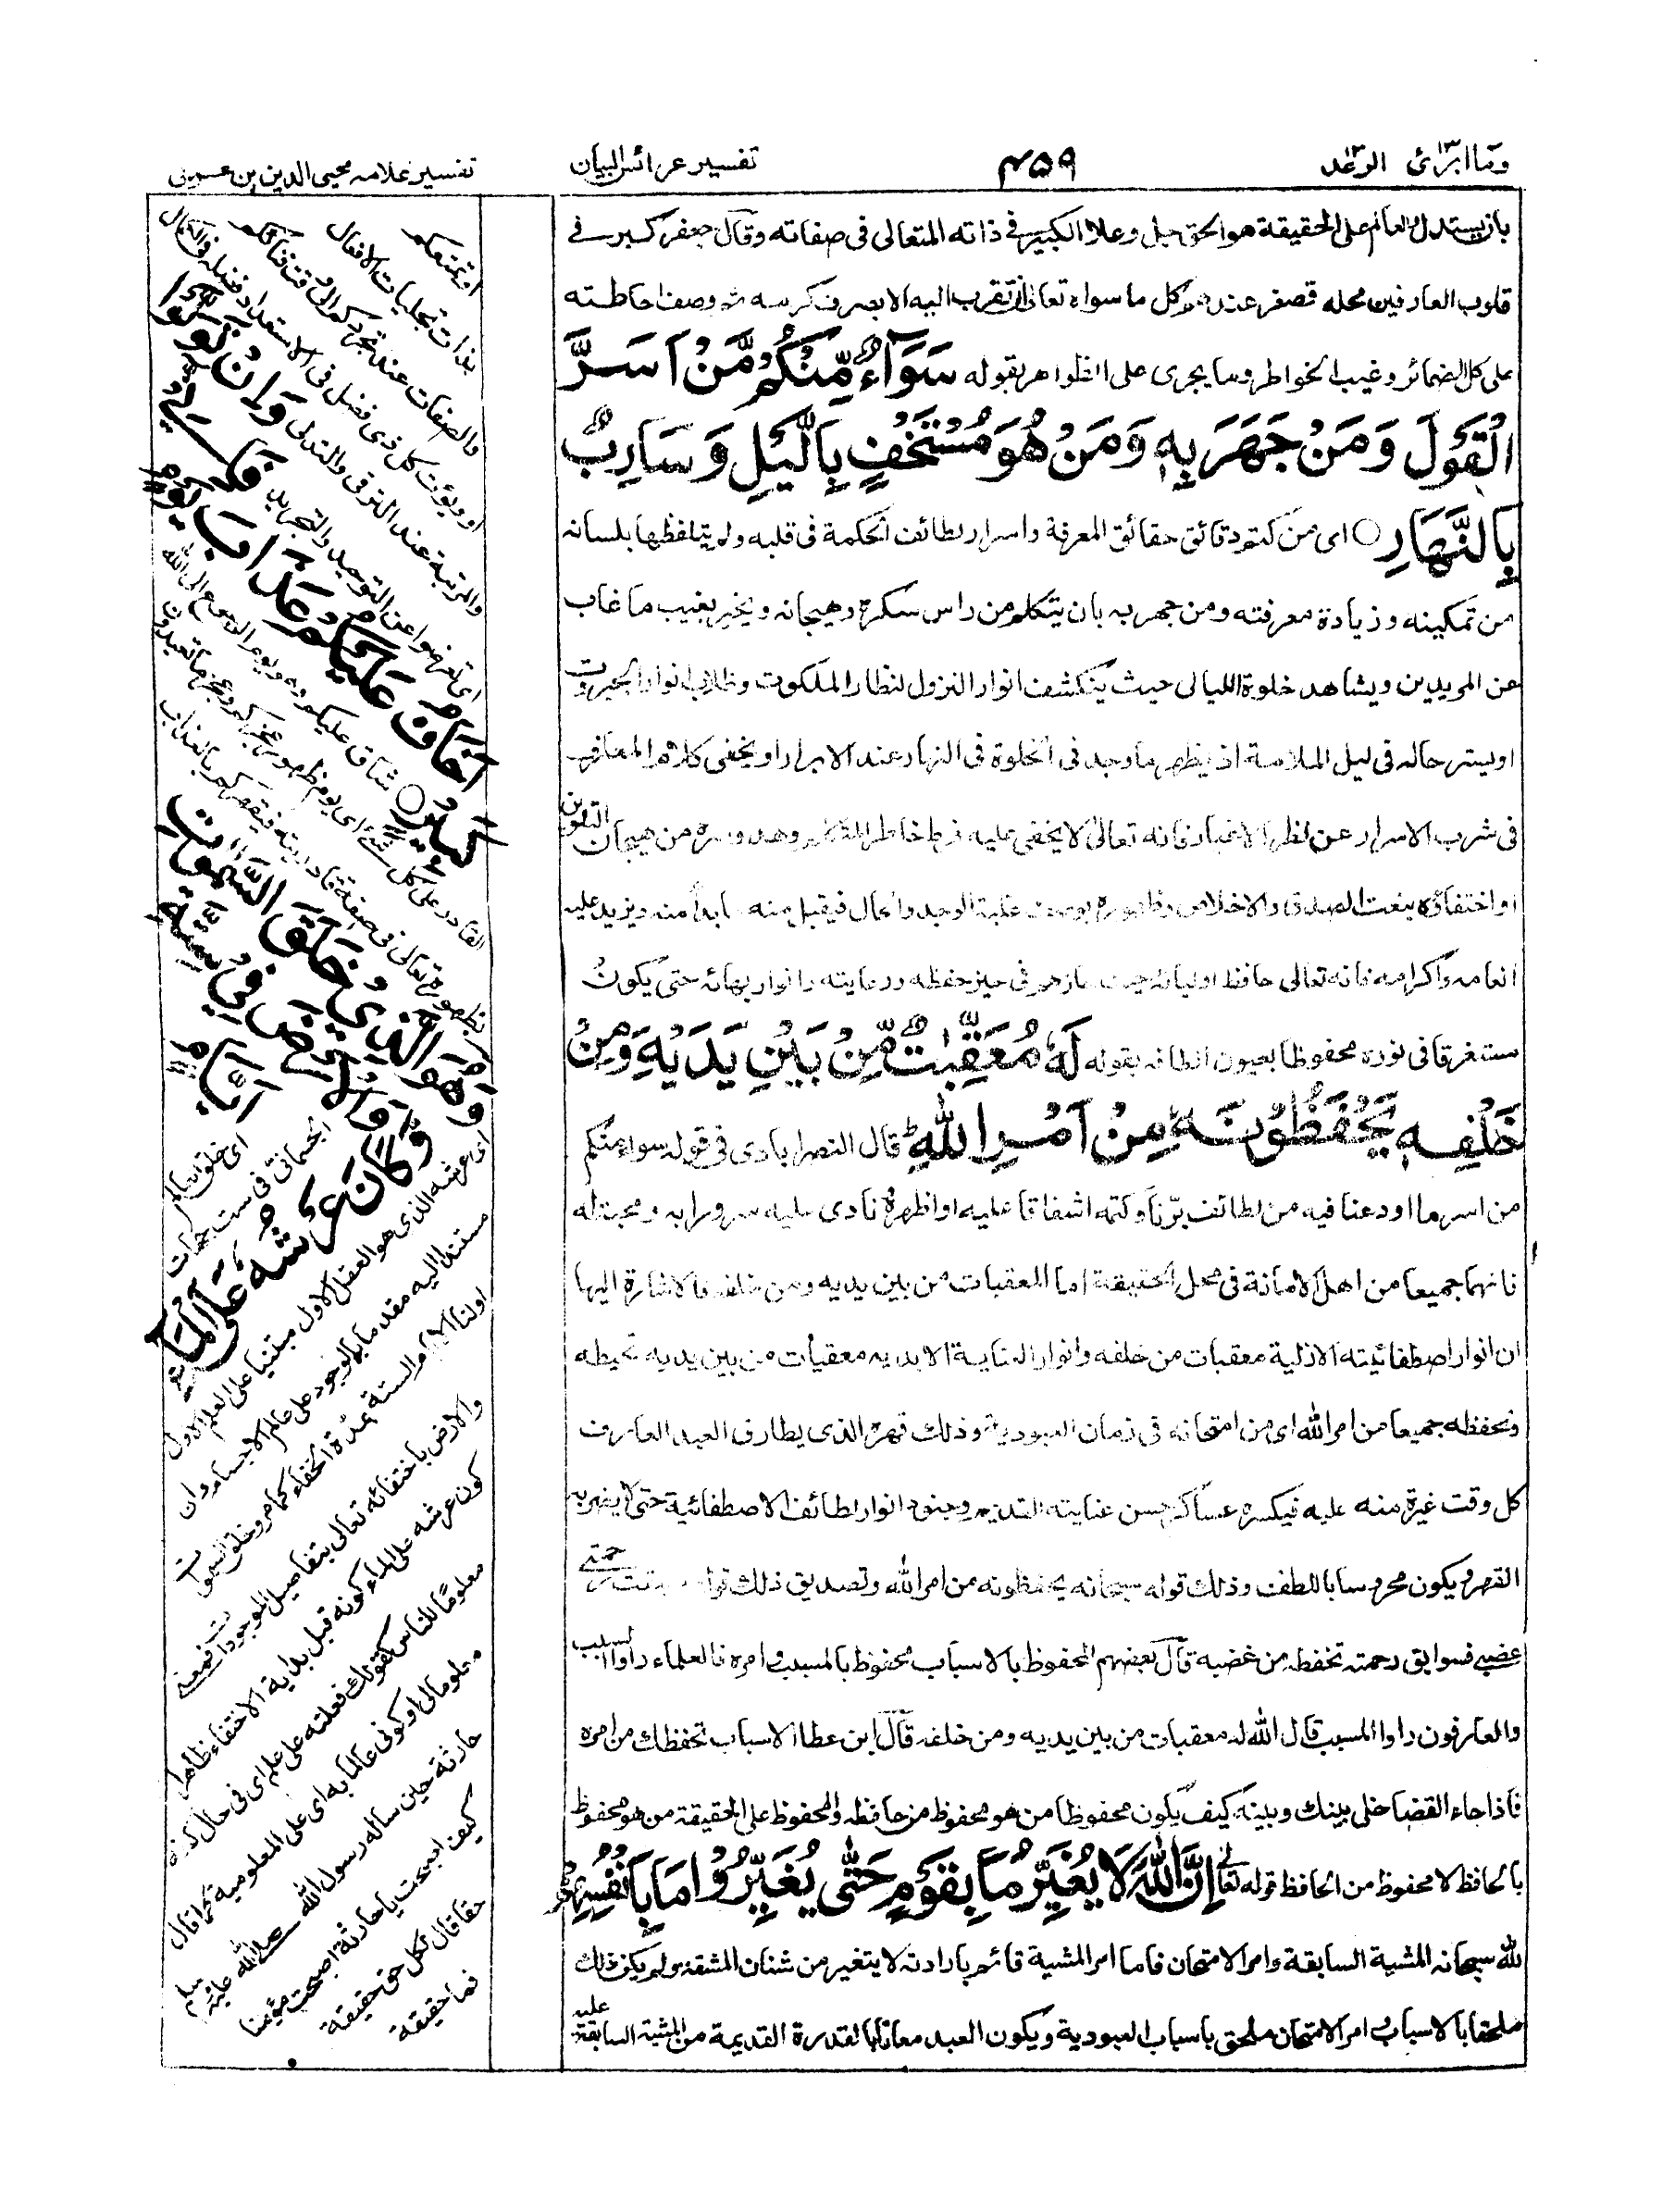 وما ابرئ ١٣ الرعد ١٣
۴۵۹
تفسير عرائس البيان
تفسير علامه محيى الدين بن عربى
بان يستدل العالم على الحقيقة هو الحق جل وعلا الكبير فى ذاته المتعالى فى صفاته وقال جعفر كبر فى
قلوب العارفين محله فصغر عندهم كل ما سواه تعالى ان تقرب اليه الا بصرف كرمه ثم وصف احاطته
على كل الضمائر وغيب الخواطر وما يجرى على الظواهر بقوله سَوَآءٌ مِّنْكُمْ مَّنْ اَسَرَّ
الْقَوْلَ وَمَنْ جَهَرَ بِهٖ وَمَنْ هُوَ مُسْتَخْفٍ بِالَّيْلِ وَسَارِبٌ
بِالنَّهَارِ ○ اى من كتم دقائق حقائق المعرفة واسرار لطائف الحكمة فى قلبه ولم يتلفظها بلسانه
من تمكينه وزيادة معرفته ومن جهر به بان يتكلم من راس سكره وهيجانه ويخبر بغيب ما غاب
عن المريدين ويشاهد خلوة الليالى حيث ينكشف انوار النزول لنظار الملكوت وطلاب انوار الجبروت
او يستر حاله فى ليل الملامة اذ يظهر ما وجد فى الخلوة فى النهار عند الابرار او يخفى كلام المعارف
فى شرب الاسرار عن نظر الاغيار فانه تعالى لا يخفى عليه خاطر من هيجان التلوين
او اختفاؤه بنعت الصدق والاخلاص وظهوره بوصف غلبة الوجد والحال فيقبل منه ما بدأ منه ويزيد عليه
انعامه واكرامه فانه تعالى حافظ اوليائه حيث فى حيز حفظه ورعايته وانوار بهائه حتى يكون
مستغرقا فى نوره محفوظا بعيون الطافه بقوله لَهٗ مُعَقِّبٰتٌ مِّنْ بَيْنِ يَدَيْهِ وَمِنْ
خَلْفِهٖ يَحْفَظُوْنَهٗ مِنْ اَمْرِ اللهِ قال النصرابادى فى قوله سواء منكم
من اسر ما اودعنا فيه من لطائف برنا وكتمه اشفاقا عليه او اظهره نادى عليه سرورا به ومحبة له
فانهما جميعا من اهل الامانة فى محل الحقيقة اما المعقبات من بين يديه ومن خلفه فالاشارة اليها
ان انوار اصطفائيته الازلية معقبات من خلفه وانوار العناية الابدية معقبات من بين يديه تحيطه
وتحفظه جميعا من امر الله اى من امتحانه فى زمان العبودية وذلك قهره الذى يطارق العبد العارف
كل وقت غيرة منه عليه فيكسره عساكر حسن عنايته القديم وجنود انوار لطائف الاصطفائية حتى لا يضر به
القهر ويكون محروسا باللطف وذلك قوله سبحانه يحفظونه من امر الله وتصديق ذلك قوله سبقت رحمتى
غضبى فسوابق رحمته تحفظه من غضبه قال بعضهم المحفوظ بالاسباب محفوظ بالمسبب وامره فالعلماء راوا السبب
والعارفون راوا المسبب قال الله له معقبات من بين يديه ومن خلفه قال ابن عطا الاسباب تحفظك من امره
فاذا جاء القضا خلى بينك وبينه كيف يكون محفوظا من هو محفوظ من حافظه والمحفوظ على الحقيقة من هو محفوظ
بالحافظ لا محفوظ من الحافظ قوله تعالى اِنَّ اللهَ لَا يُغَيِّرُ مَا بِقَوْمٍ حَتّٰى يُغَيِّرُوْا مَا بِاَنْفُسِهِمْ
لله سبحانه المشية السابقة وامر الامتحان فاما امر المشية قائم بارادته لا يتغير من شنان المشقة ولم يكن ذلك
ملحقا بالاسباب وامر الامتحان ملحق باسباب العبودية ويكون العبد معانا بالقدرة القديمة من المشية السابقة عليه
او تمتعكم
بذات تجليات الافعال
والصفات عند تجردكم الى وقت فنائكم
او ويؤت كل ذى فضل فى الاستعداد فضله فى الكمال
والمرتبة عند الترقى والتدلى وَاِنْ تَوَلَّوْا
اى تعرضوا عن التوحيد والتجريد فَاِنِّىْٓ
اَخَافُ عَلَيْكُمْ عَذَابَ يَوْمٍ
كَبِيْرٍ ○ شاق عليكم وهو يوم الرجوع الى الله
القادر على كل شئ اى يوم ظهور عجزكم وعجز ما تعبدون
بظهوره تعالى فى صفة قادريته فيقهركم بالعذاب
وَهُوَ الَّذِىْ خَلَقَ السَّمٰوٰتِ
وَالْاَرْضَ فِىْ سِتَّةِ
اَيَّامٍ اى خلق العالم
الجسمانى فى ست جهات
وَّكَانَ عَرْشُهٗ عَلَى الْمَآءِ
اى عرشه الذى هو العقل الاول مبتنيا على العلم الاول
مستندا اليه مقدما بالوجود على عالم الاجسام وان
اولنا الايام الستة بمدة الخفاء كما مر وخلق السموات
والارض باختفائه تعالى بتفاصيل الموجودات فمعنى
كون عرشه على الماء كونه قبل بداية الاختفاء ظاهرا
معلوما للناس كقولك فعلته على علم اى فى حال كونه
معلوما لى او كونى عالما به اى على المعلومية كما قال
حارثة حين ساله رسول الله صلى الله عليه وسلم
كيف اصبحت يا حارثة اصبحت مؤمنا
حقا قال لكل حق حقيقة
فما حقيقة